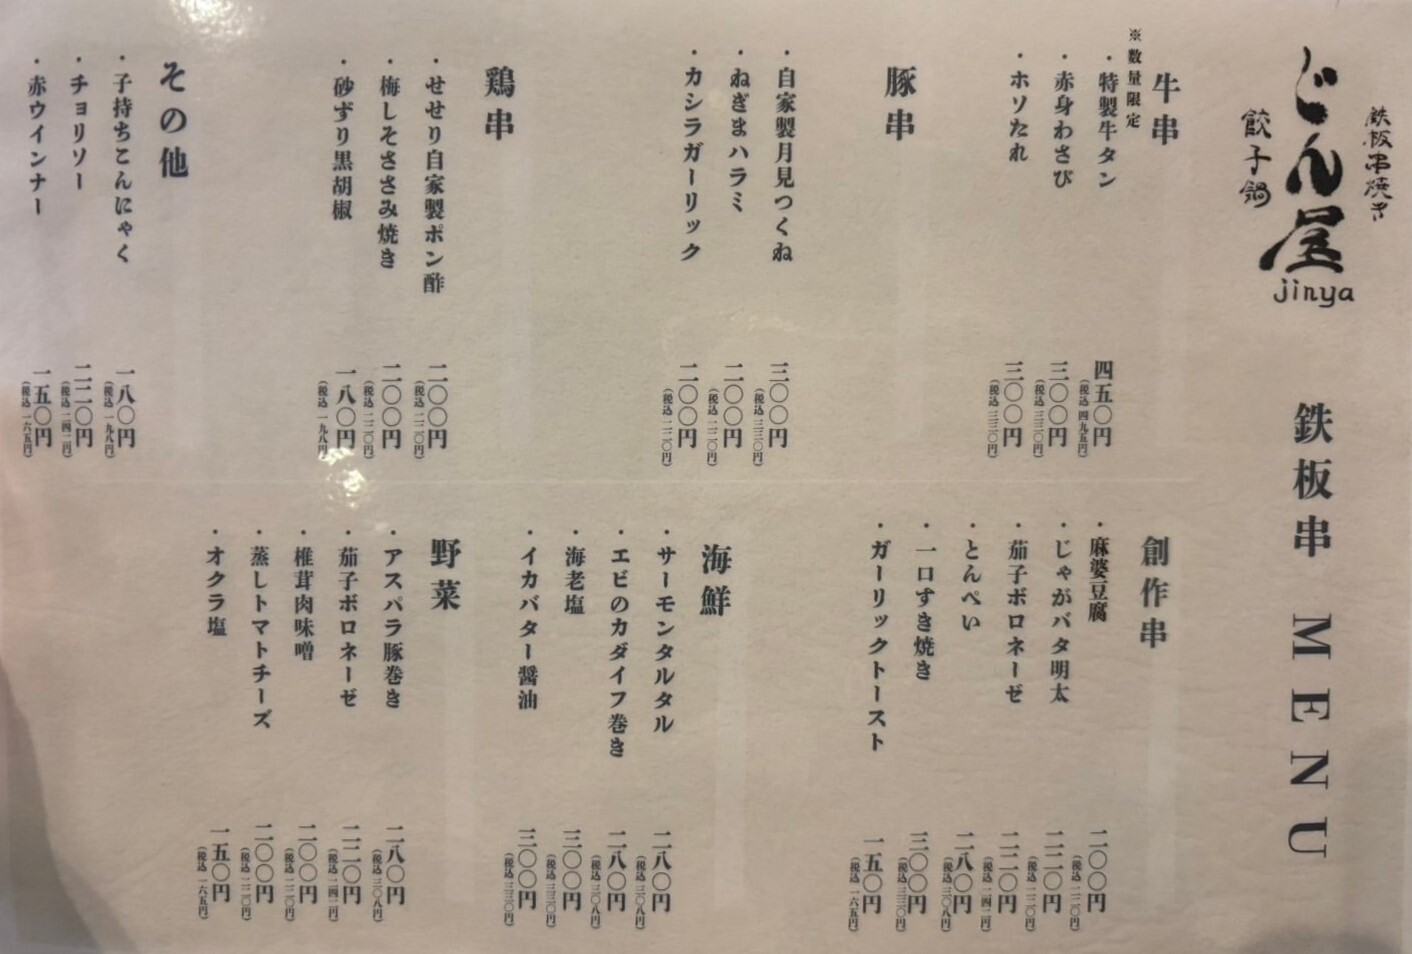 鉄板串焼き
じん屋
jinya
餃子鍋
鉄板串 MENU
牛串
※数量限定
・特製牛タン 四五〇円
(税込 四九五円)
・赤身わさび 三〇〇円
(税込 三三〇円)
・ホソたれ 三〇〇円
(税込 三三〇円)
豚串
・自家製月見つくね 三〇〇円
(税込 三三〇円)
・ねぎまハラミ 二〇〇円
(税込 二二〇円)
・カシラガーリック 二〇〇円
(税込 二二〇円)
鶏串
・せせり自家製ポン酢 二〇〇円
(税込 二二〇円)
・梅しそささみ焼き 二〇〇円
(税込 二二〇円)
・砂ずり黒胡椒 一八〇円
(税込 一九八円)
その他
・子持ちこんにゃく 一八〇円
(税込 一九八円)
・チョリソー 二二〇円
(税込 二四二円)
・赤ウインナー 一五〇円
(税込 一六五円)
創作串
・麻婆豆腐 二〇〇円
(税込 二二〇円)
・じゃがバタ明太 二二〇円
(税込 二二〇円)
・茄子ボロネーゼ 二二〇円
(税込 二四二円)
・とんぺい 二八〇円
(税込 三〇八円)
・一口すき焼き 三〇〇円
(税込 三三〇円)
・ガーリックトースト 一五〇円
(税込 一六五円)
海鮮
・サーモンタルタル 二八〇円
(税込 三〇八円)
・エビのカダイフ巻き 二八〇円
(税込 三〇八円)
・海老塩 三〇〇円
(税込 三三〇円)
・イカバター醤油 三〇〇円
(税込 三三〇円)
野菜
・アスパラ豚巻き 二八〇円
(税込 三〇八円)
・茄子ボロネーゼ 二二〇円
(税込 二四二円)
・椎茸肉味噌 二〇〇円
(税込 二二〇円)
・蒸しトマトチーズ 二〇〇円
(税込 二二〇円)
・オクラ塩 一五〇円
(税込 一六五円)